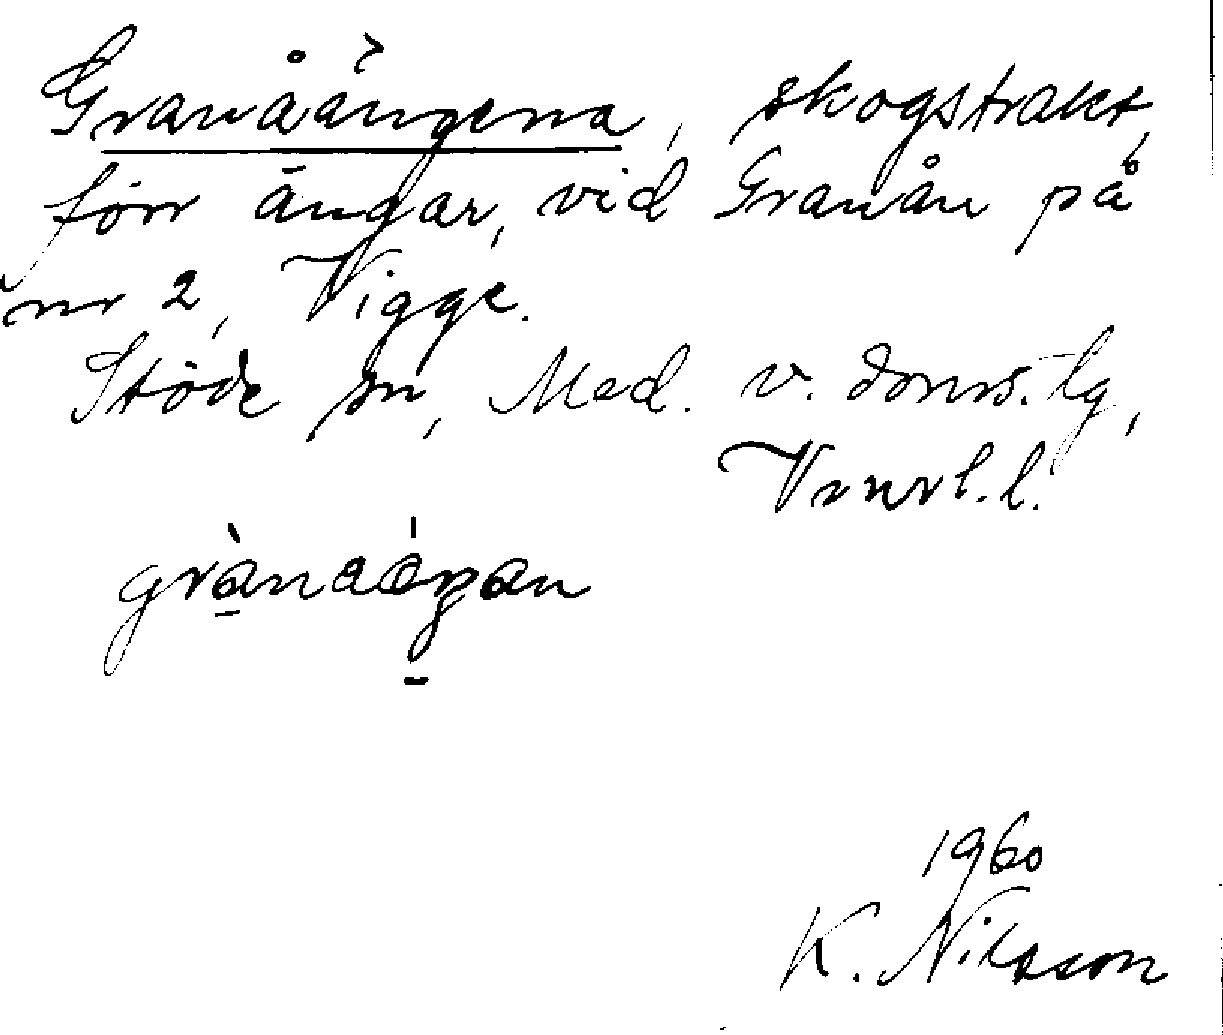 Granåängena, skogstrakt,
förr ängar, vid Granån på
nr 2, Vigge.
Stöde sn, Med. v. doms. lg,
Vnorl. l.
1960
K. Nilsson